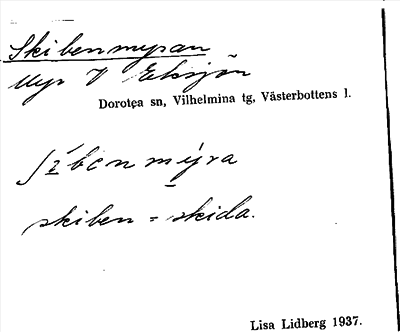 Skibenmyran
Myr V Eksjön
Dorotea sn, Vilhelmina tg, Västerbottens l.
ʃɪ̄benmýra
skiben = skida.
Lisa Lidberg 1937.